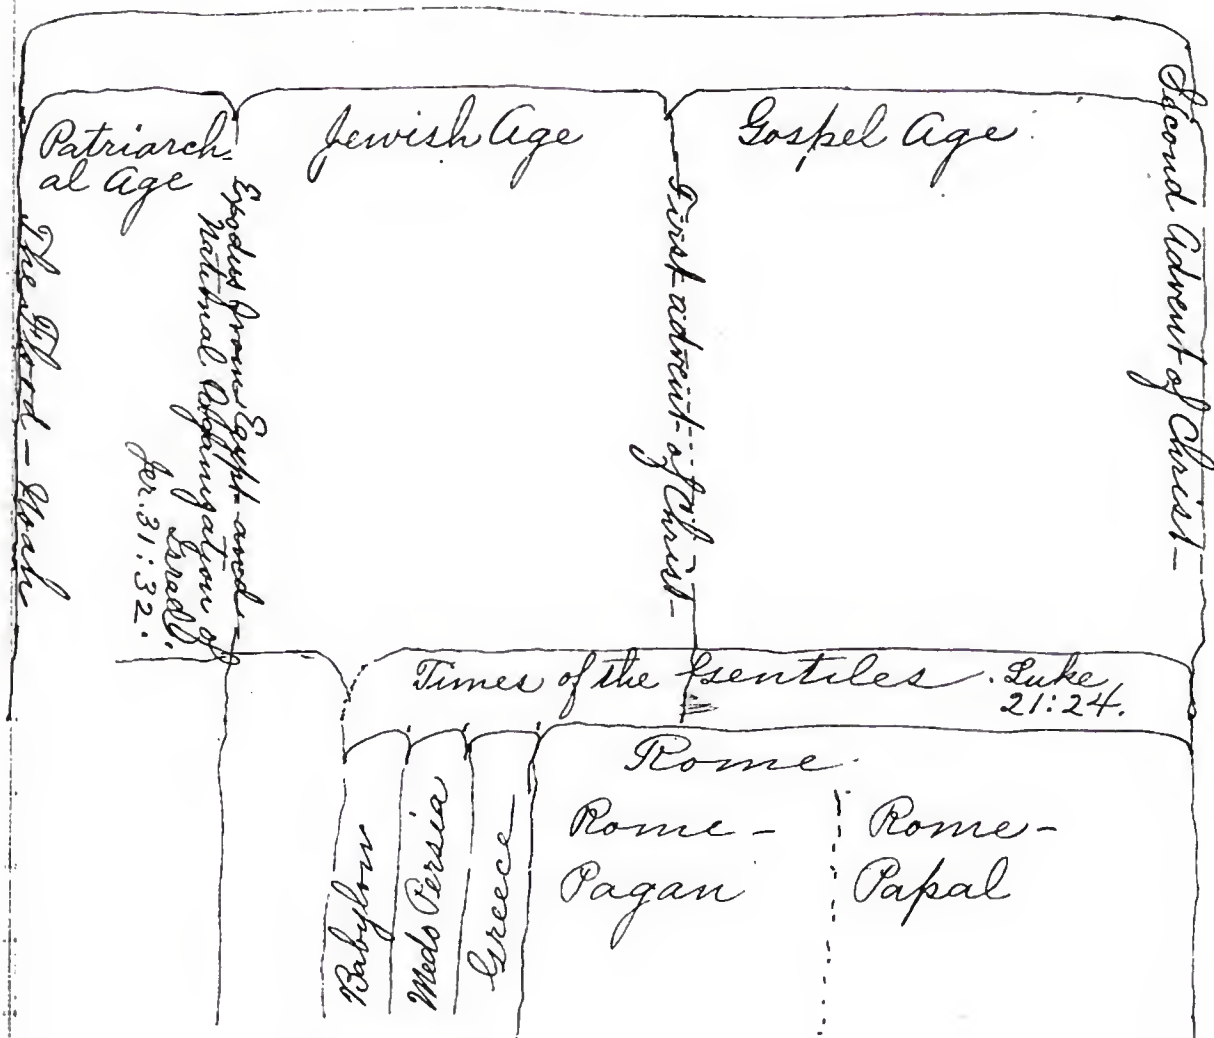 Patriarch-
al Age
Jewish Age
Gospel Age
The Flood - Noah
Exodus from Egypt and -
National Organization of
Israel.
Jer. 31:32.
First advent of Christ -
Second Advent of Christ -
Times of the Gentiles. Luke
21:24.
Babylon
Medo Persia
Greece
Rome.
Rome -
Pagan
Rome -
Papal